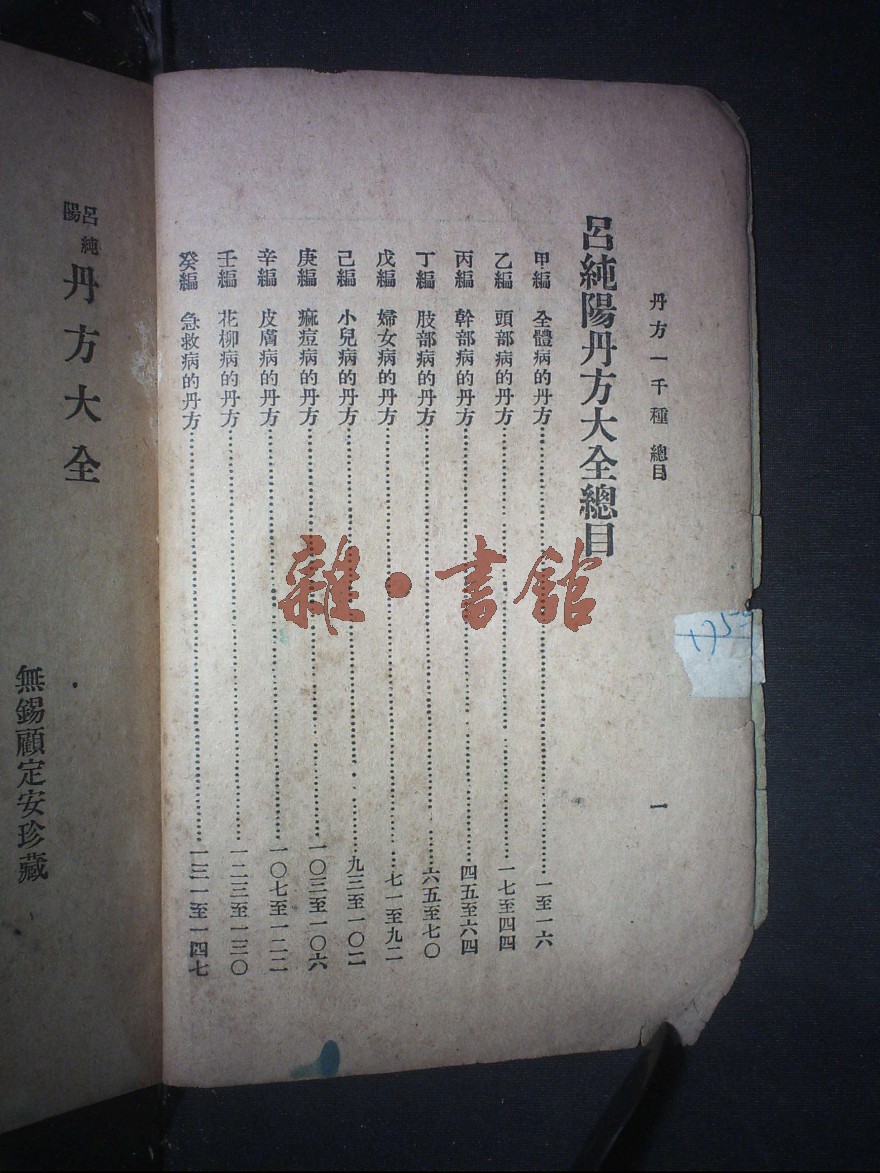 丹方一千種 總目 一
呂純陽丹方大全總目
甲編 全體病的丹方 一至一六
乙編 頭部病的丹方 一七至四四
丙編 幹部病的丹方 四五至六四
丁編 肢部病的丹方 六五至七〇
戊編 婦女病的丹方 七一至九二
己編 小兒病的丹方 九三至一〇二
庚編 痲痘病的丹方 一〇三至一〇六
辛編 皮膚病的丹方 一〇七至一二二
壬編 花柳病的丹方 一二三至一三〇
癸編 急救病的丹方 一三一至一四七
呂純陽丹方大全
無錫顧定安珍藏
雜·書館